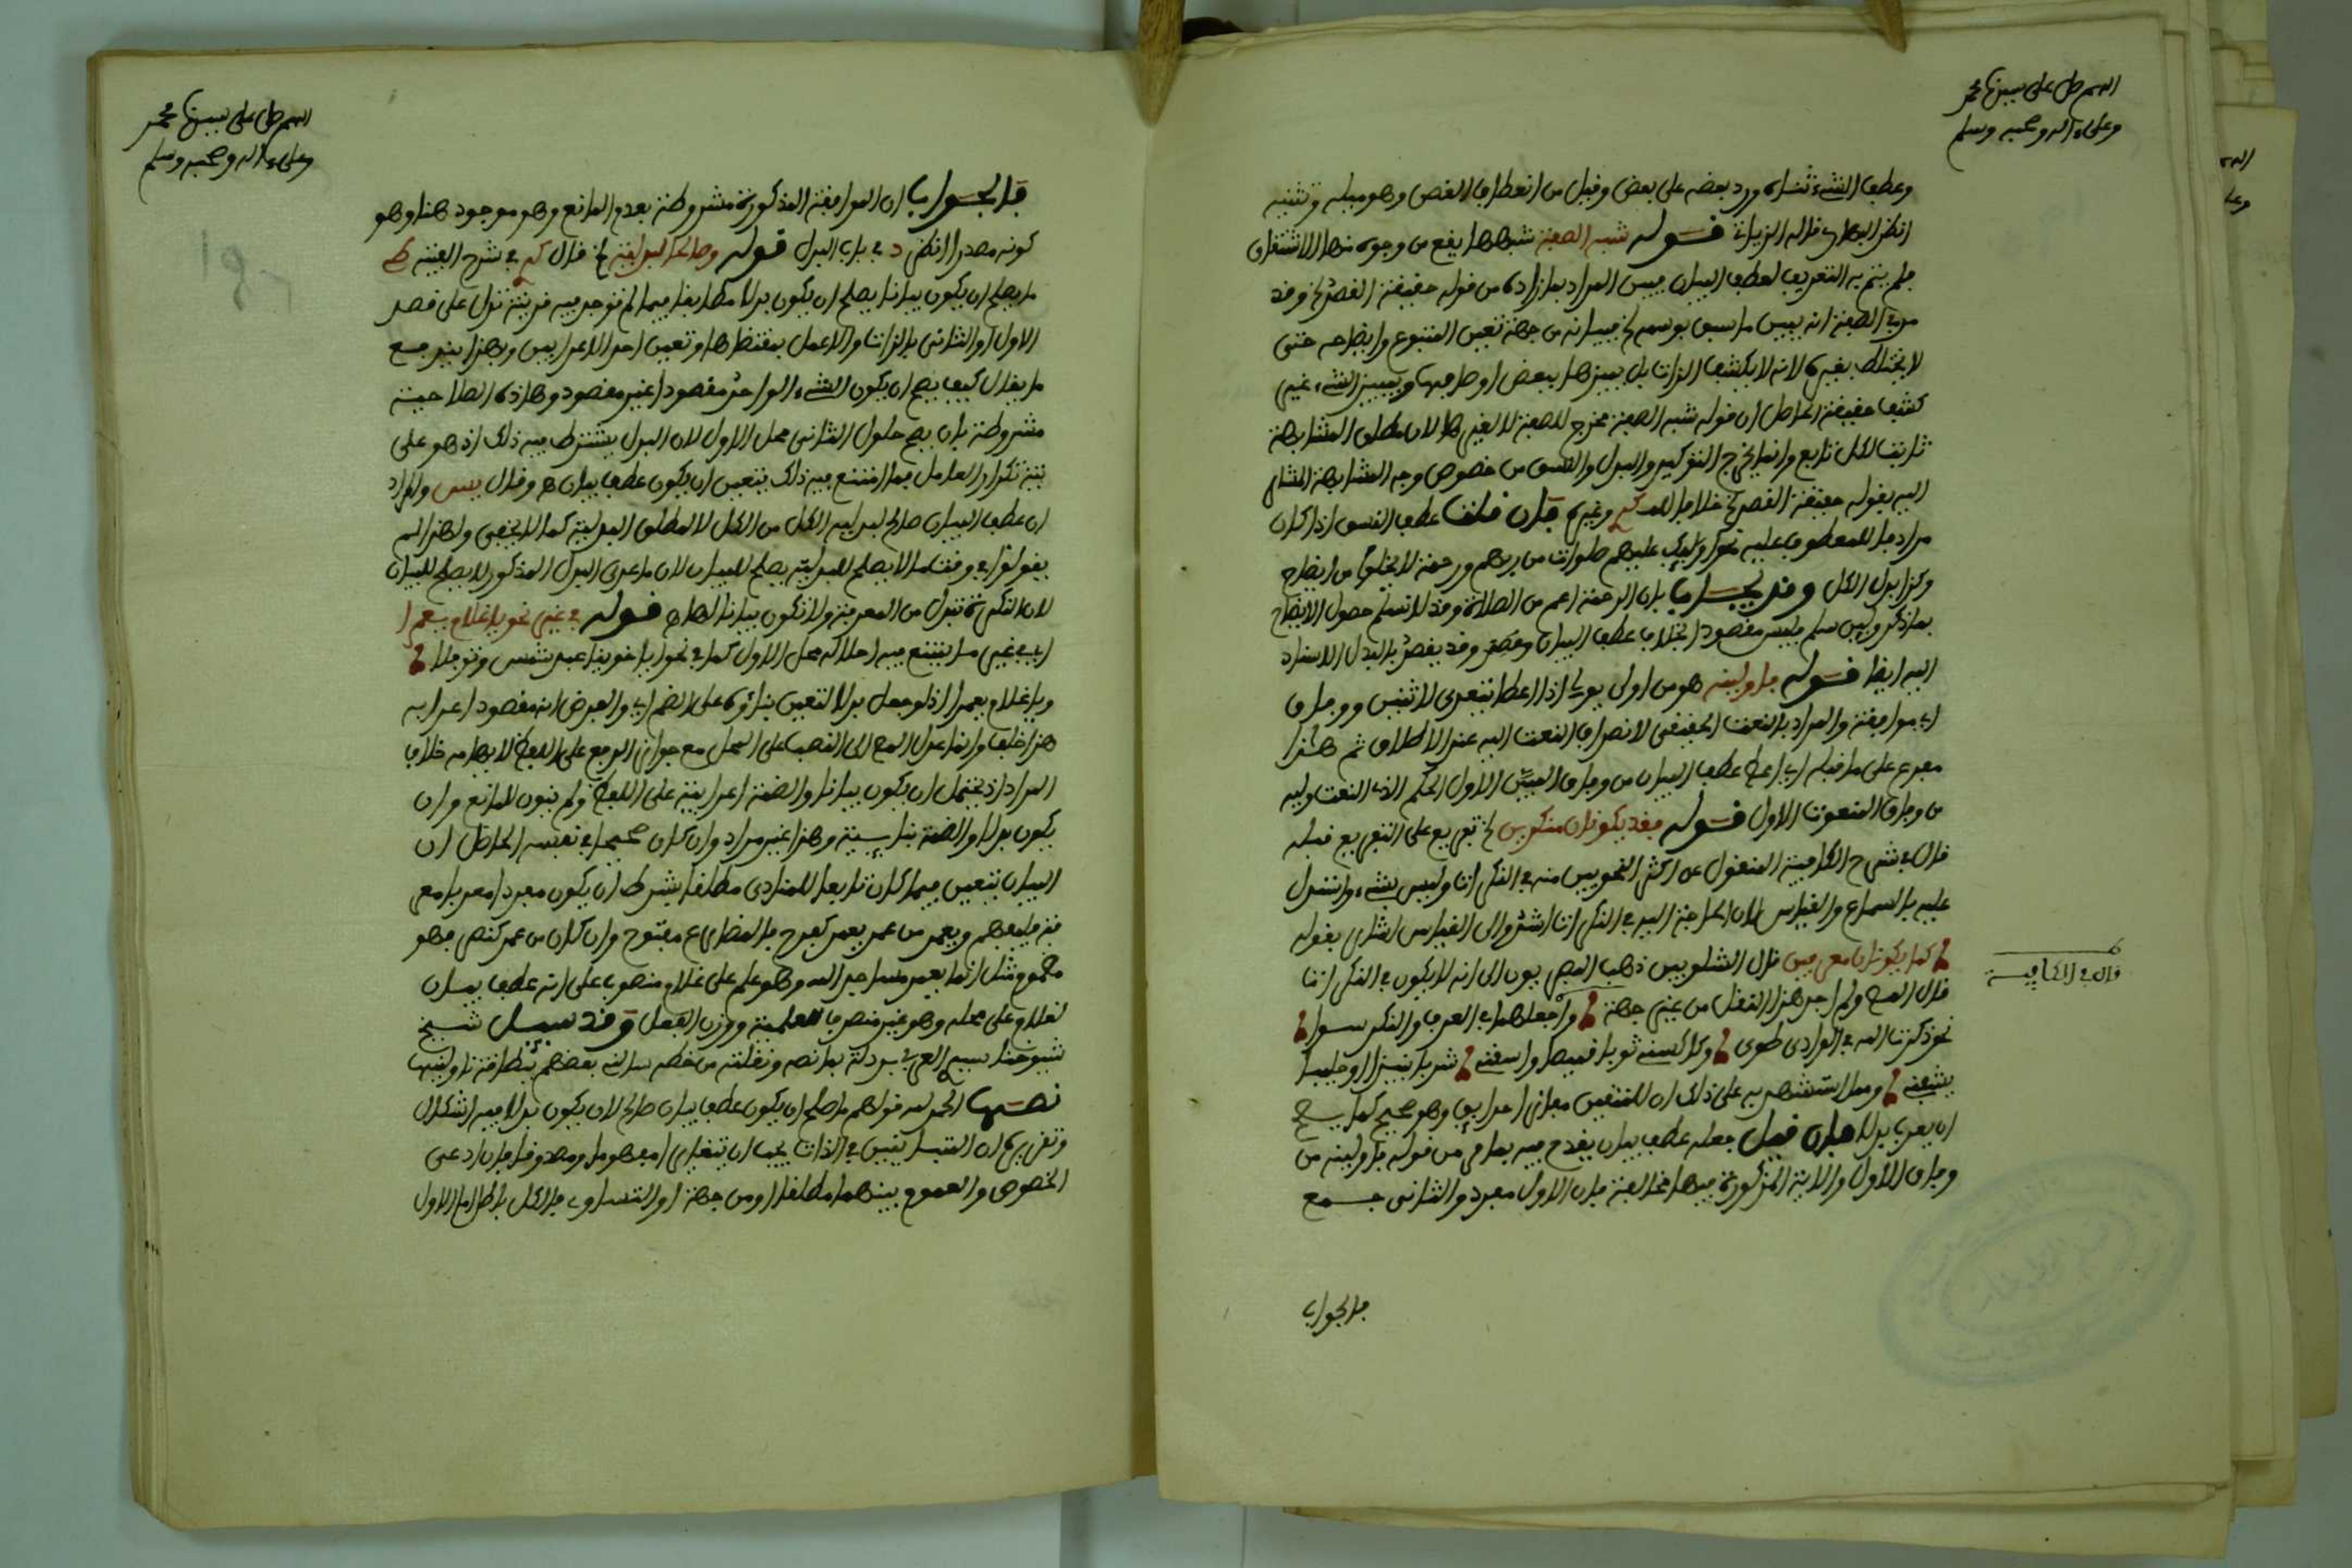 اللهم صل على سيدنا محمد
وعلى ءاله وصحبه وسلم
وعطف الشيء ثناه ورد بعضه على بعض وقيل من انعطاف الغصن وهو ميله وتثنيه
انظر قاله الزياتي قوله شبه الصفة شبهها يقع من وجوه منها الاشتقاق
فلم يتم به التعريف لعطف البيان فبين المراد بما زاده من قوله حقيقة القصد الخ وقد
مر في الصفة انه يبين ما سبق بوسمه الخ فبيانه من جهة تعيين المتبوع وايضاحه حتى
لا يختلط بغيره لانه لا يكشف الذات بل يميزها ببعض اوصافها وتمييز الشيء غير
كشف حقيقته الحاصل ان قوله شبه الصفة مخرج للصفة لا لغيرها لان مطلق المشابهة
ثابت لكل تابع وانما يخرج التوكيد والبدل والنسق من خصوص وجه المشابهة المشار
اليه بقوله حقيقة القصد الخ خلافا وغيره فان قلت عطف النسق اذا كان
مرادفا للمعطوف عليه نحو اولئك عليهم صلوات من ربهم ورحمة لا يخلو من ايضاح
وكذا بدل الكل وقد يجاب بان الرحمة اعم من الصلاة وقد لا نسلم حصول الايضاح
بما ذكر ولين سلم فليس مقصودا بخلاف عطف البيان وقد يقصد بالبدل الاسناد
اليه ايضا قوله فاولينه هو من اولى يولي اذا اعطى فتتعدى لاثنين ووفاق
اي موافقة والمراد بالنعت الحقيقي لانصراف النعت اليه عند الاطلاق ثم هذا
مفرع على ما قبله اي اعط عطف البيان من وفاق المبين الاول الحكم الذي النعت وليه
من وفاق المنعوت الاول قوله فقد يكونان منكرين الخ تفريع على التفريع قبله
قال في شرح الكافية المنقول عن اكثر النحويين منعه في النكرات وليس بشيء واستدل
عليه بالسماع والقياس لان الحاجة اليه في النكرات اشد والى القياس اشار بقوله
كما يكونان معرفين قال الشلوبين ذهب البصريون الى انه لا يكون في النكرات
قال المص ولم اجد هذا النقل من غير جهة واجعلهما في العرف والنكر سوا
نحو ذكرت الله في الوادي طوى وكذا كسيته ثوبا قميصا واسقه شرابا نبيذا او حليبا
يشفه ومما استشهد به على ذلك ان للمتقين مفازا حدايق وهو صحيح كما يصح
ان يعرب بدلا فان قيل جعله عطف بيان يقدح فيه بما مر من قوله فاولينه من
وفاق الاول والاية المذكورة فيها مخالفة فان الاول مفرد والثاني جمع
قال في الكافية
فالجواب
اللهم صل على سيدنا محمد
وعلى ءاله وصحبه وسلم
فالجواب ان الموافقة المذكورة مشروطة بعدم المانع وهو موجود هنا وهو
كونه مصدرا انظر د في باب البدل قوله وصالحا لبدلية الخ قال في شرح الفيته
ما يصلح ان يكون بيانا يصلح ان يكون بدلا مطابقا فيما لم توجد فيه قرينة تدل على قصد
الاول او الثاني بالذات والا عمل بمقتضاها وتعين احد الاعرابين وبهذا يندفع
ما يقال كيف يصح ان يكون الشيء الواحد مقصودا غير مقصود وهاذه الصلاحية
مشروطة بان يصح حلول الثاني محل الاول لان البدل يشترط فيه ذلك اذ هو على
نية تكرار العامل فما امتنع فيه ذلك يتعين ان يكون عطف بيان وقال يس والمراد
ان عطف البيان صالح لبدلية الكل من الكل لا لمطلق البدلية كما لا يخفى ولهذا لم
يقولوا في وقت ما لا يصلح للبدلية يصلح للبيان لان ما عدى البدل المذكور لا يصلح للبيان
لان النكرة تبدل من المعرفة ولا تكون بيانا لها قوله في غير نحو يا غلام يعمرا
اي في غير ما يمتنع فيه احلاله محل الاول كما في نحو ايا اخوينا عبد شمس ونوفلا
ويا غلام يعمرا اذ لو جعل بدلا لتعين بناؤه على الضم اي والفرض انه مقصود اعرابه
هذا خلف وانما عدل المص الى النصب على المحل مع جواز الرفع على اللفظ لايهامه خلاف
المراد اذ يحتمل ان يكون بيانا والضمة اعرابية على اللفظ ولم ينون للمانع وان
يكون بدلا والضمة بنايية وهذا غير مراد وان كان صحيحا في نفسه الحاصل ان
البيان يتعين فيما كان تابعا للمنادى مطلقا بشرط ان يكون مفردا معربا مع
ويعمر من عمر يعمر كفرح فالمضارع مفتوح وان كان من عمر كنصر فهو
مضموم مثل انما يعمر مساجد الله وهو علم على غلام منصوب على انه عطف بيان
لغلام على محله وهو غير منصرف للعلمية ووزن الفعل وقد سيل شيخ
شيوخنا بما نصه ونقلته من خطه
نصها الحمد لله قولهم ما صلح ان يكون عطف بيان صالح لان يكون بدلا فيه اشكال
وتقريره ان المتباينين في الذات يجب ان يتغايرا مفهوما ومصدوقا فان ادعى
الخصوص والعموم بينهما مطلقا او من جهة او التساوي فالكل باطل اما الاول